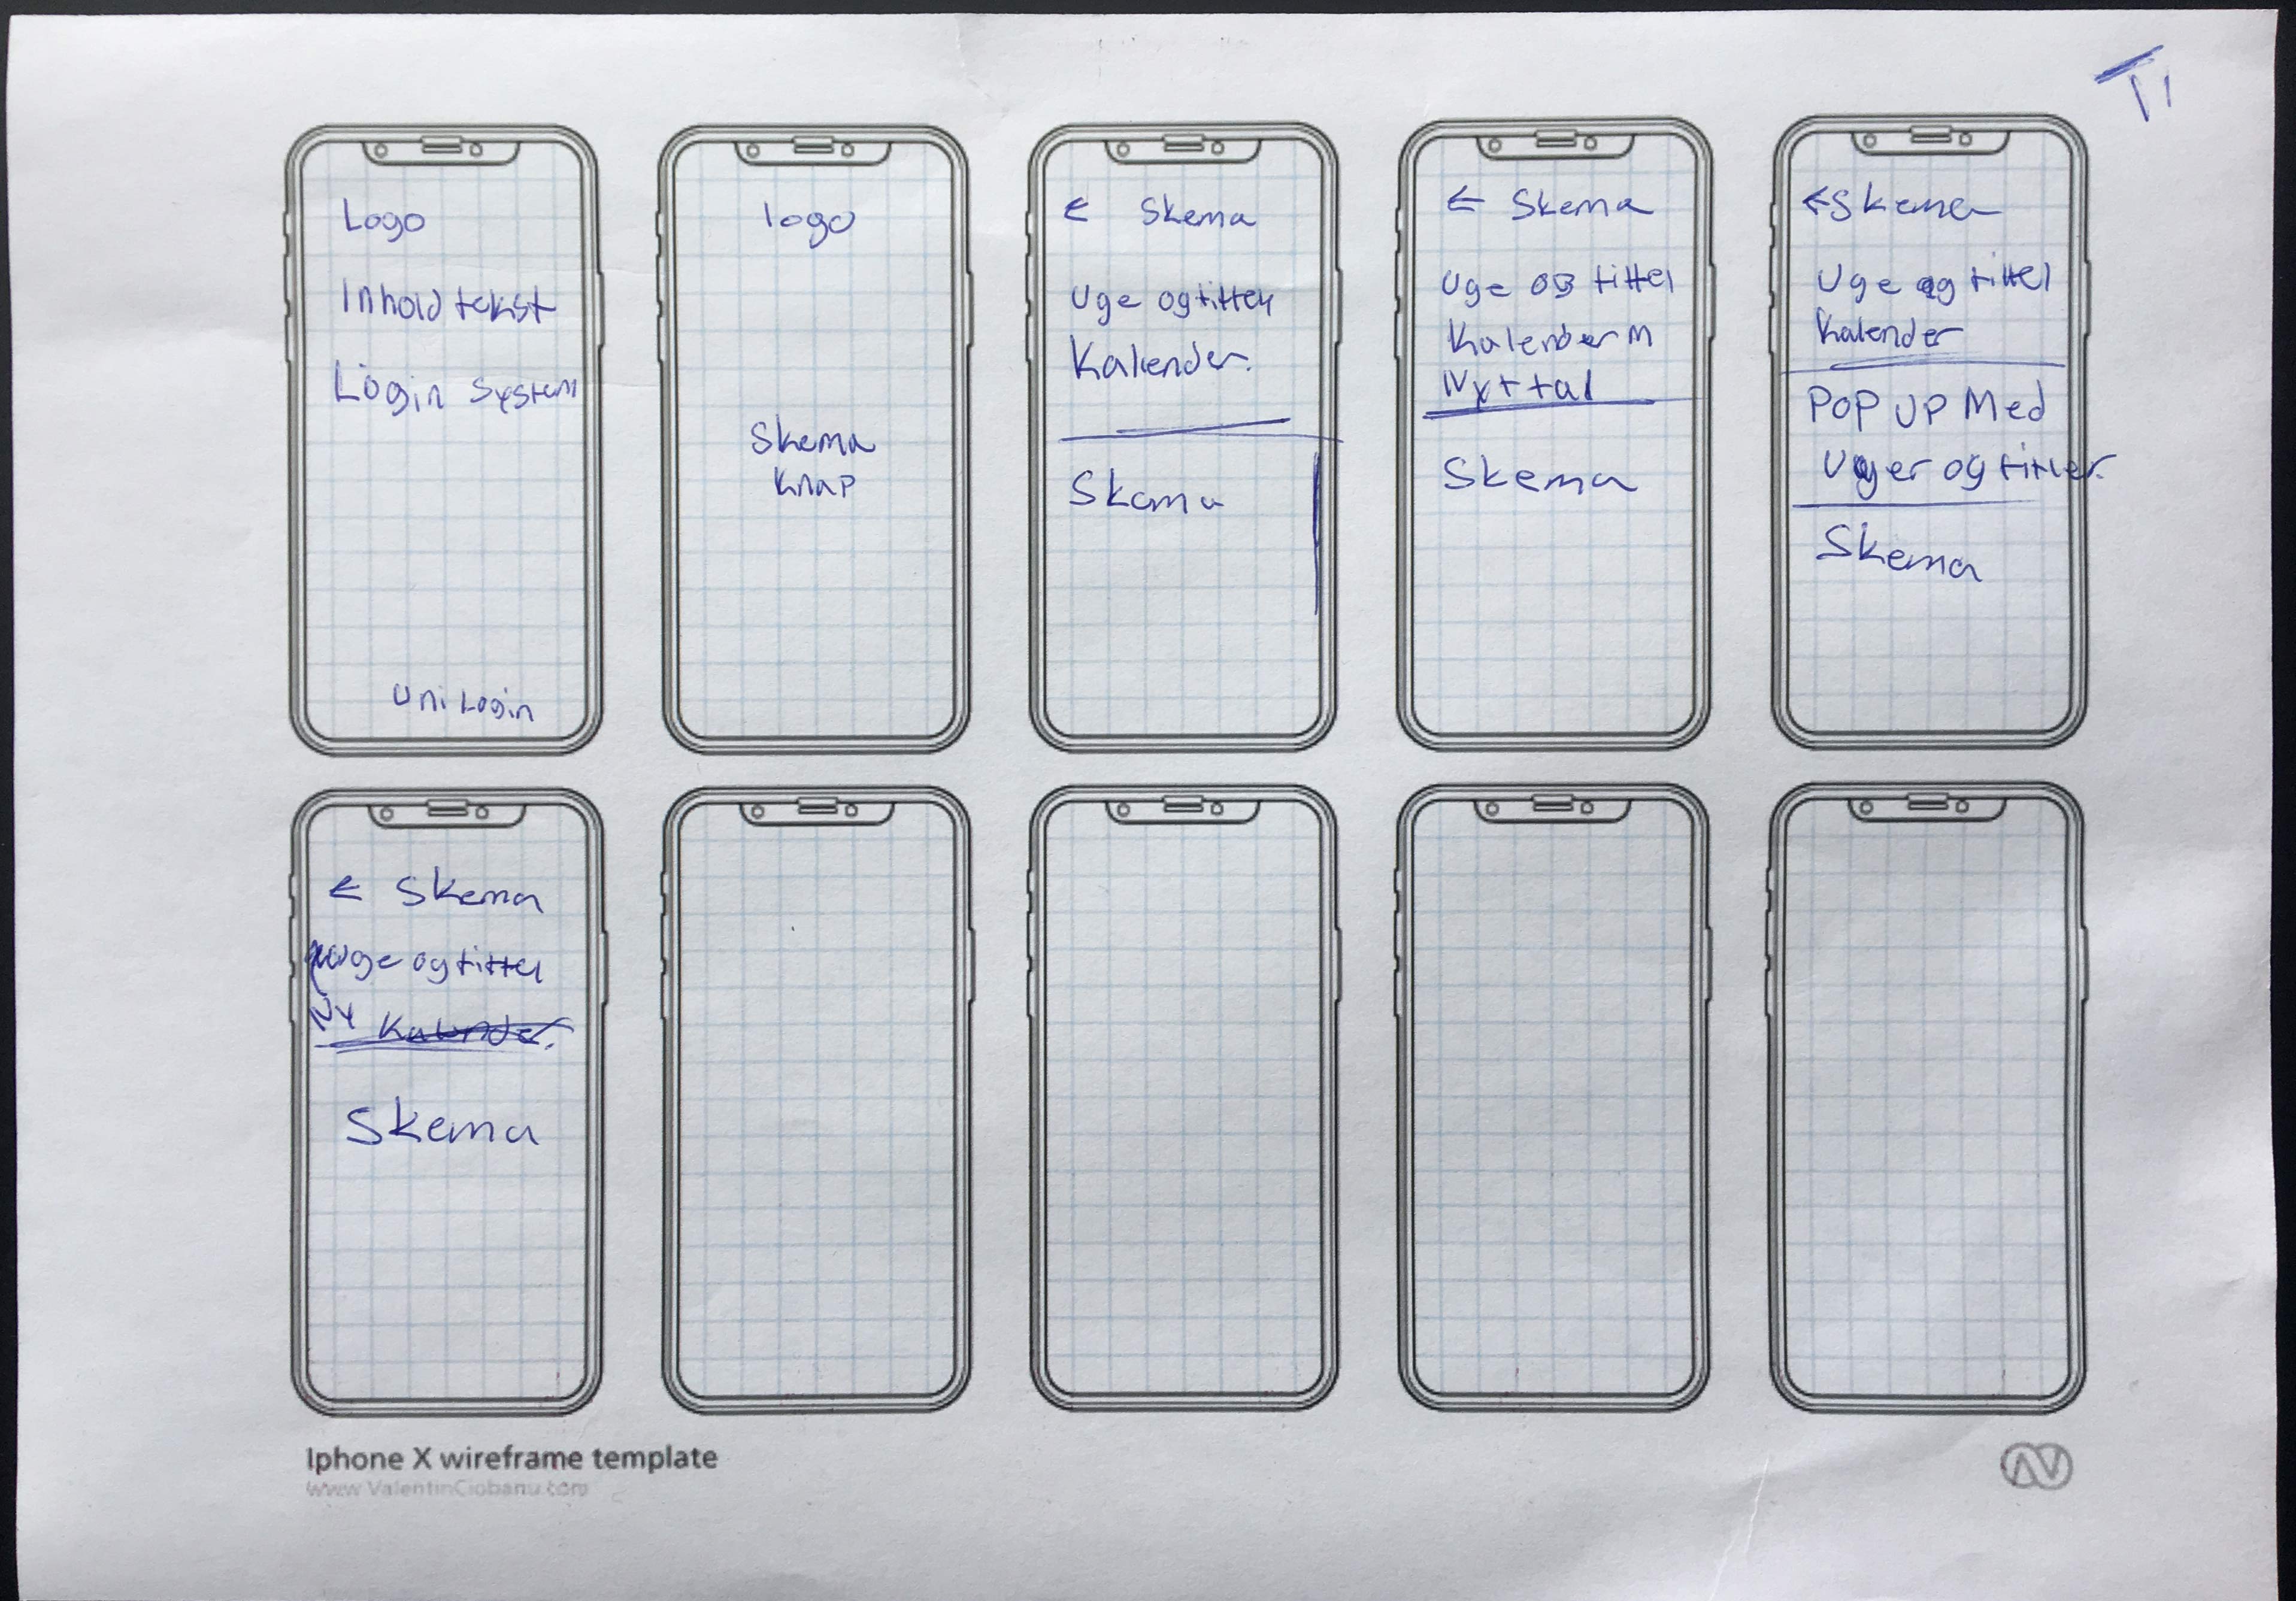 T1
Logo
Inhold tekst
Login system
Uni Login
logo
Skema
Knap
← Skema
Uge og tittel
Kalender.
Skema
← Skema
Uge og tittel
Kalender M
Nyt tal
Skema
← Skema
Uge og tittel
Kalender
Pop up Med
Uger og titler.
Skema
← Skema
uge og tittel
Ny Kalender.
Skema
Iphone X wireframe template
www.ValentinCiobanu.com